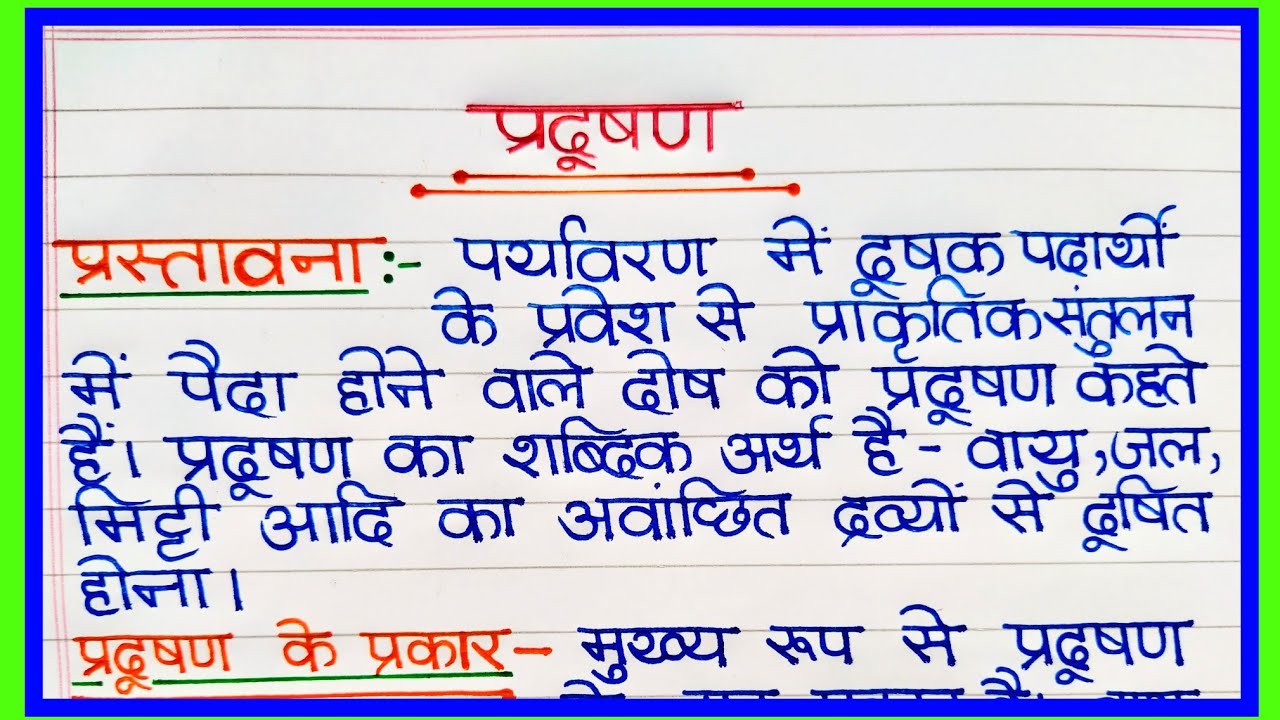 प्रदूषण
प्रस्तावना :- पर्यावरण में दूषक पदार्थों
के प्रवेश से प्राकृतिक संतुलन
में पैदा होने वाले दोष को प्रदूषण कहते
हैं। प्रदूषण का शब्दिक अर्थ है - वायु, जल,
मिट्टी आदि का अवांछित द्रव्यों से दूषित
होना।
प्रदूषण के प्रकार - मुख्य रूप से प्रदूषण